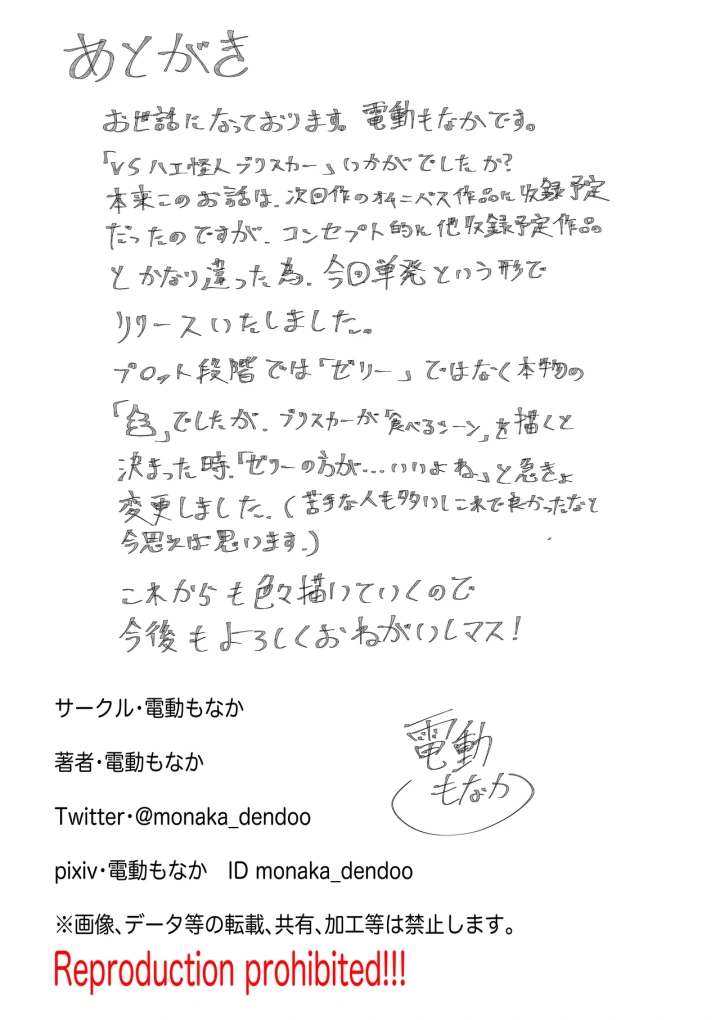 あとがき
お世話になっております。電動もなかです。
「VSハエ怪人ブリスカー」いかがでしたか?
本来このお話は、次回作のオムニバス作品に収録予定
だったのですが、コンセプト的に他収録予定作品
とかなり違った為、今回単発という形で
リリースいたしました。
プロット段階では「ゼリー」ではなく本物の
でしたが、ブリスカーが「食べるシーン」を描くと
決まった時、「ゼリーの方が…いいよね」と急きょ
変更しました。(苦手な人も多いしこれで良かったなと
今思えば思います。)
これからも色々描いていくので
今後もよろしくおねがいしマス!
サークル・電動もなか
著者・電動もなか
電動
もなか
Twitter・@monaka_dendoo
pixiv・電動もなか ID monaka_dendoo
※画像、データ等の転載、共有、加工等は禁止します。
Reproduction prohibited!!!